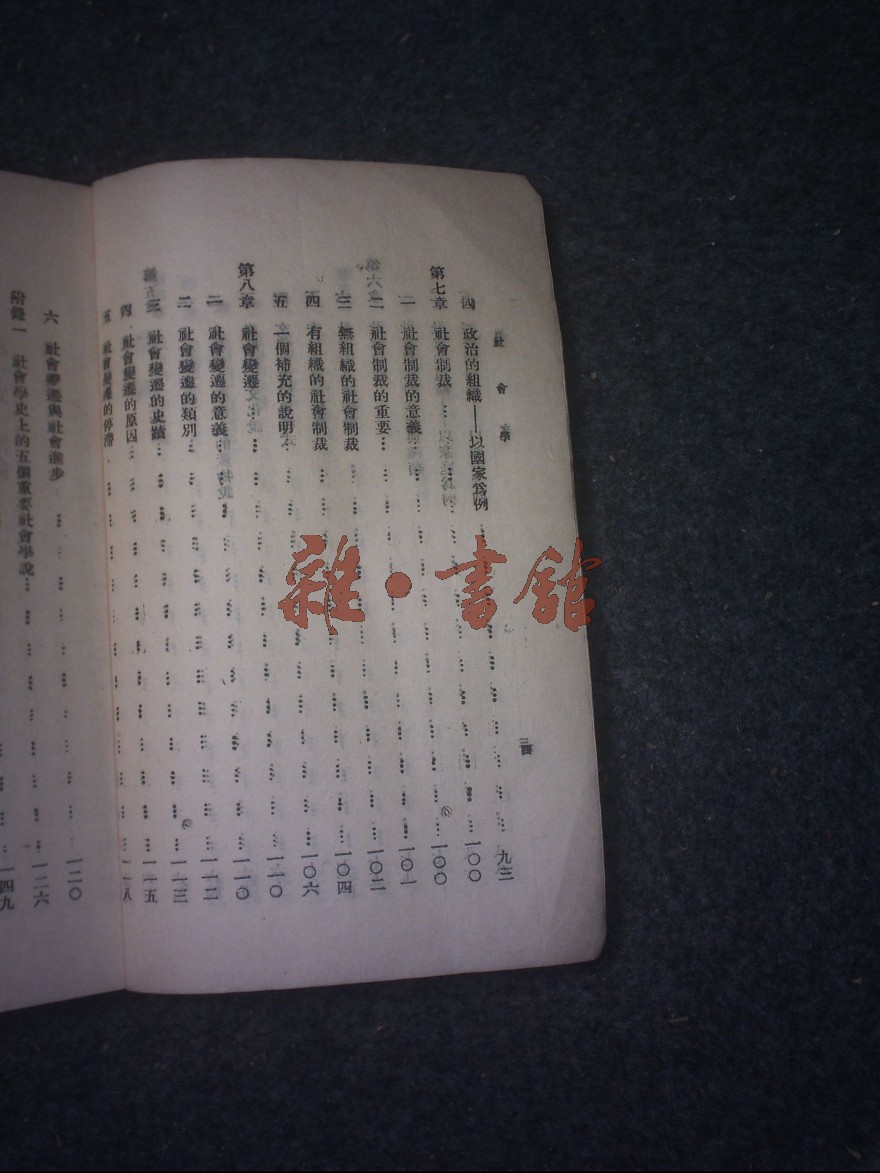 社會學
四 政治的組織——以國家爲例……九三
第七章 社會制裁……一〇〇
一 社會制裁的意義……一〇〇
二 社會制裁的重要……一〇一
三 無組織的社會制裁……一〇二
四 有組織的社會制裁……一〇四
五 一個補充的說明……一〇六
第八章 社會變遷……一一〇
一 社會變遷的意義……一一〇
二 社會變遷的類別……一一二
三 社會變遷的史蹟……一一三
四 社會變遷的原因……一一五
五 社會變遷的停滯……一一八
六 社會變遷與社會進步……一二〇
附錄一 社會學史上的五個重要社會學說……一二六
一四九
雜·書館